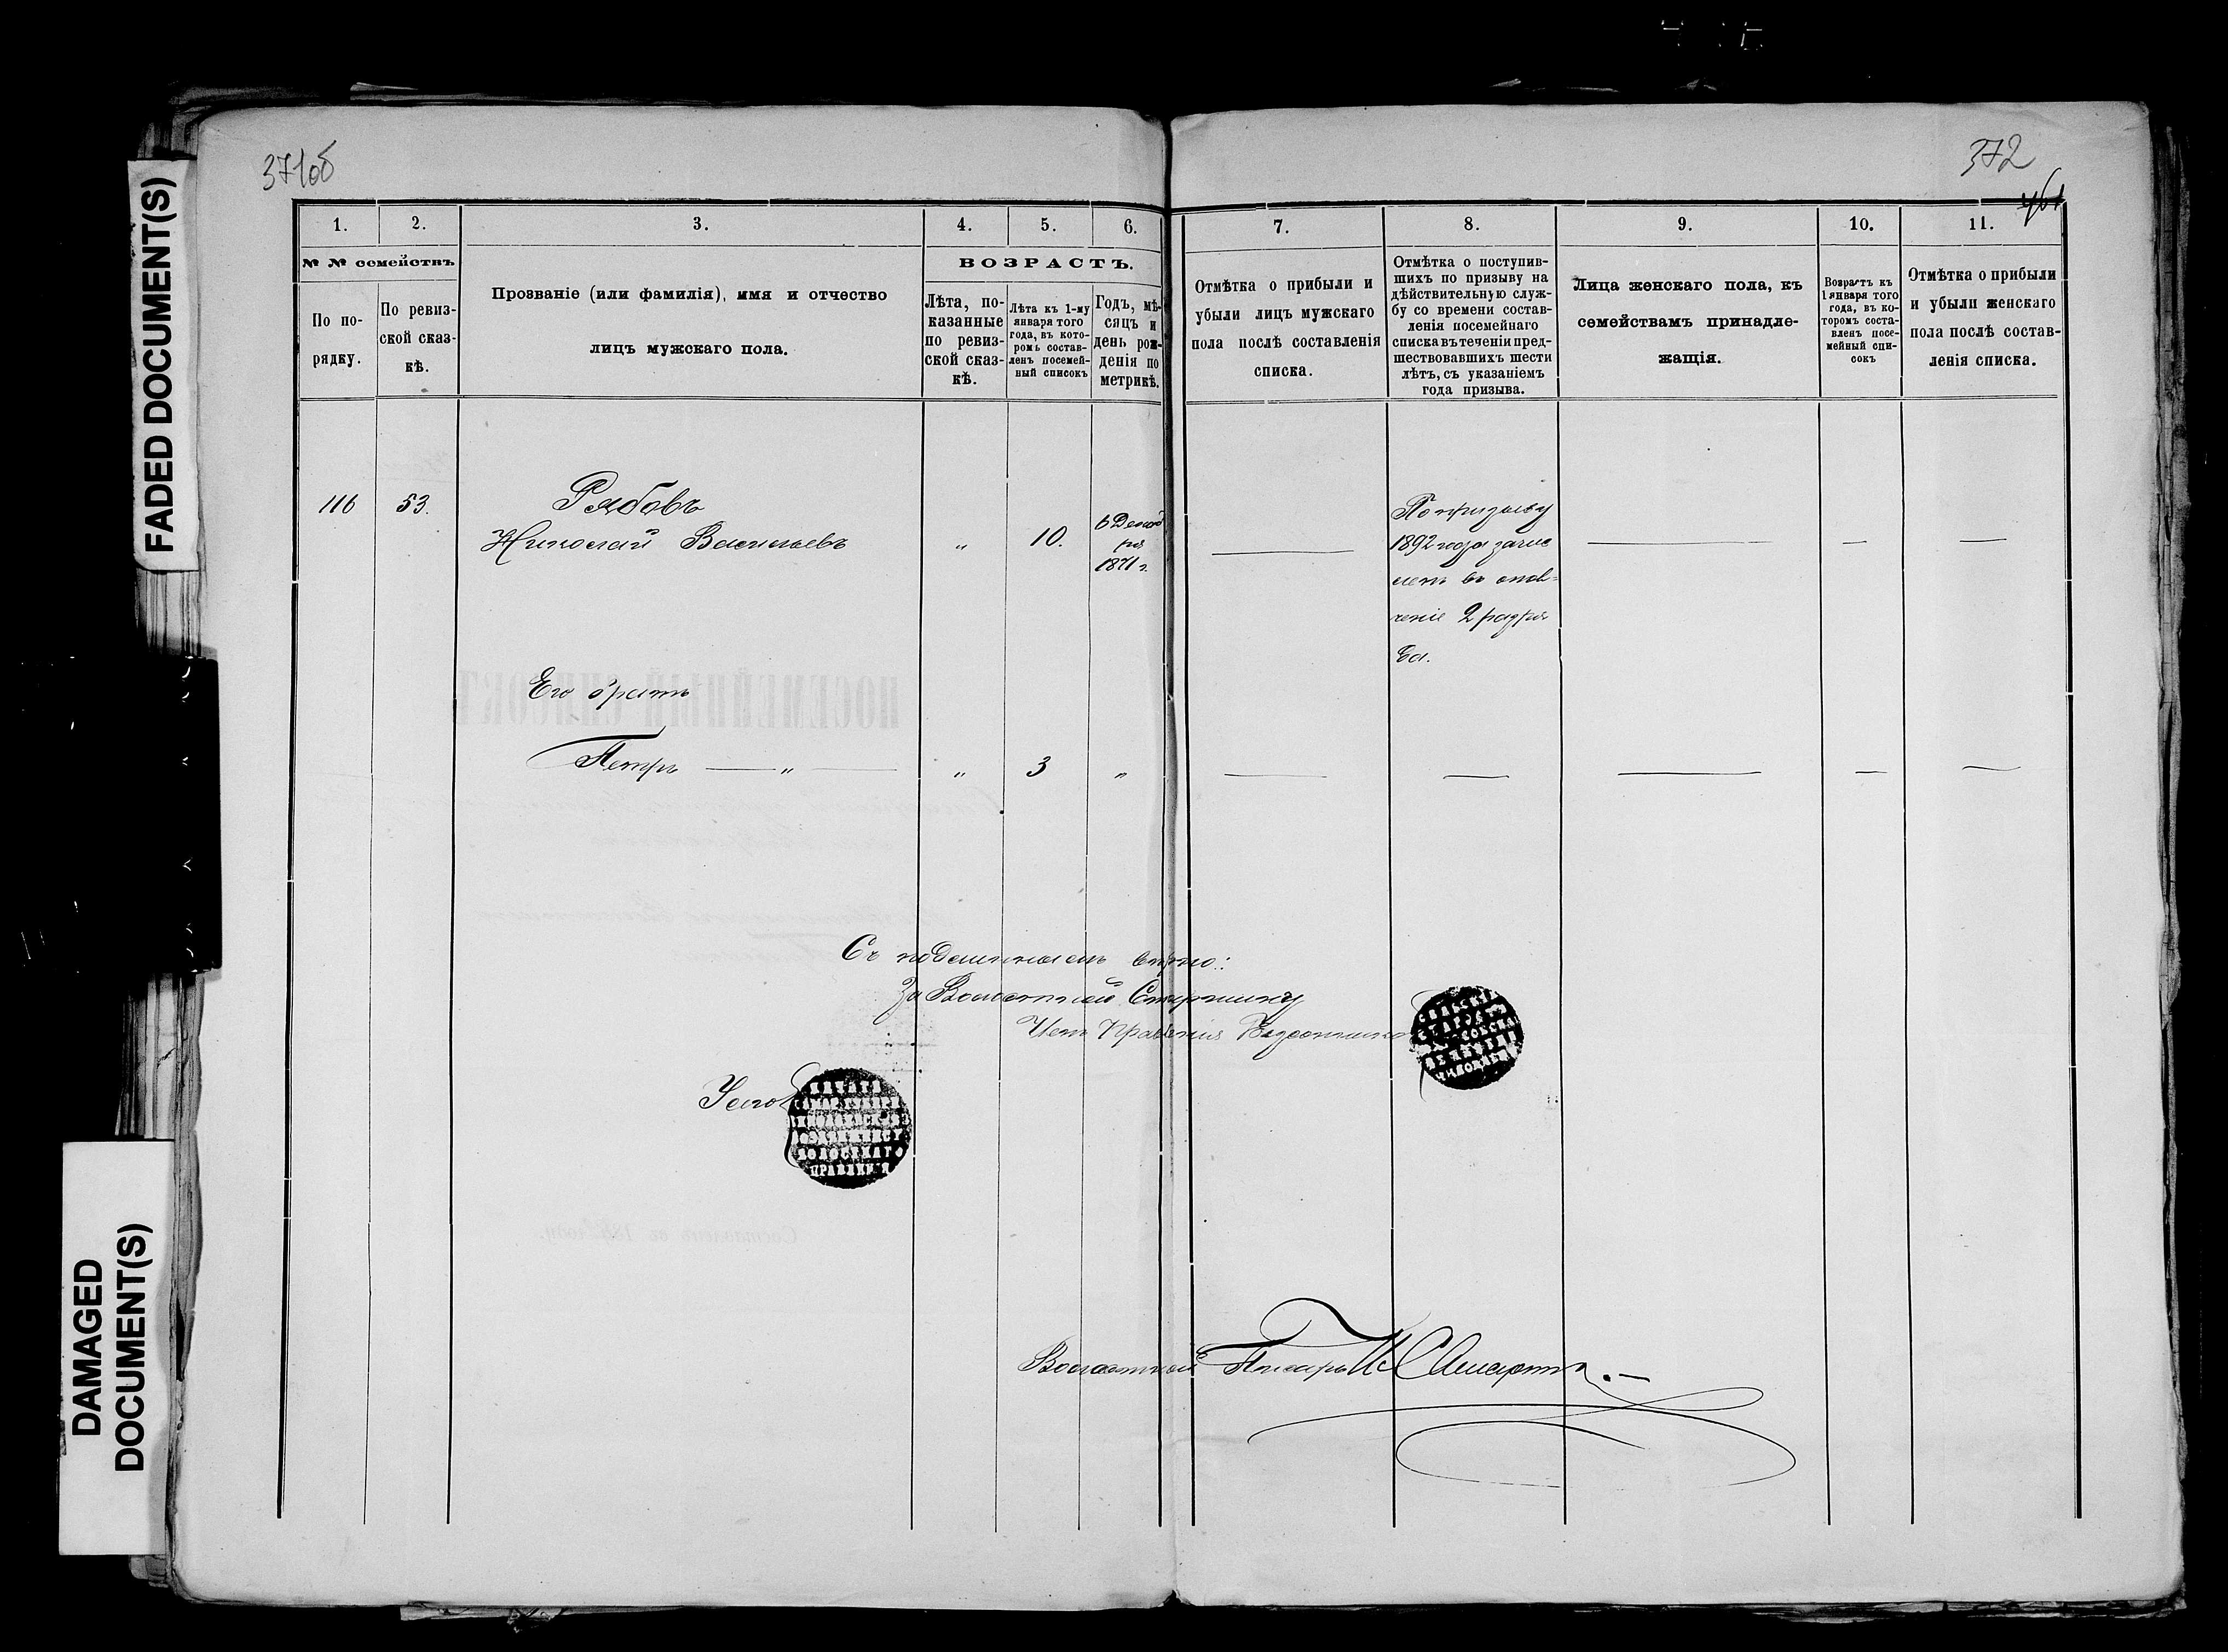 FADED DOCUMENT(S)
DAMAGED
DOCUMENT(S)
371об
372
1.
2.
3.
4.
5.
6.
7.
8.
9.
10.
11.
№ № семействъ
По по-
рядку.
По ревиз-
ской сказ-
кѣ.
Прозваніе (или фамилія), имя и отчество
лицъ мужскаго пола.
ВОЗРАСТЪ.
Лѣта, по-
казанные
по ревиз-
ской сказ-
кѣ.
Лѣта къ 1-му
января того
года, въ кото-
ромъ состав-
ленъ посемей-
ный списокъ
Годъ, мѣ-
сяцъ и
день рож-
денія по
метрикѣ.
Отмѣтка о прибыли и
убыли лицъ мужскаго
пола послѣ составленія
списка.
Отмѣтка о поступив-
шихъ по призыву на
дѣйствительную служ-
бу со времени состав-
ленія посемейнаго
списка въ теченіи пред-
шествовавшихъ шести
лѣтъ, съ указаніемъ
года призыва.
Лица женскаго пола, къ
семействамъ принадле-
жащія.
Возрастъ къ
1 января того
года, въ ко-
торомъ соста-
вленъ посе-
мейный спи-
сокъ
Отмѣтка о прибыли
и убыли женскаго
пола послѣ состав-
ленія списка.
116
53.
Рябовъ
Николай Васильевъ
„
10.
6 Декаб
ря
1871 г.
По призыву
1892 года зачис
ленъ въ опол-
ченіе 2 разря
да.
Его братъ
Петръ — „ —
„
3
„
Съ подлиннымъ вѣрно:
За Волостной Старшину
Членъ Правленія
ПЕЧАТЬ
САМАР. ГУБЕРН
НИКОЛАЕВСК.
ВОЛОСТНАГО
ПРАВЛЕНІЯ
Волостной Писарь